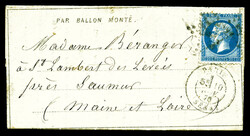 PAR BALLON MONTÉ.
Madame Béranger
à St Lambert des Levées
près Saumur
(Maine et Loire)